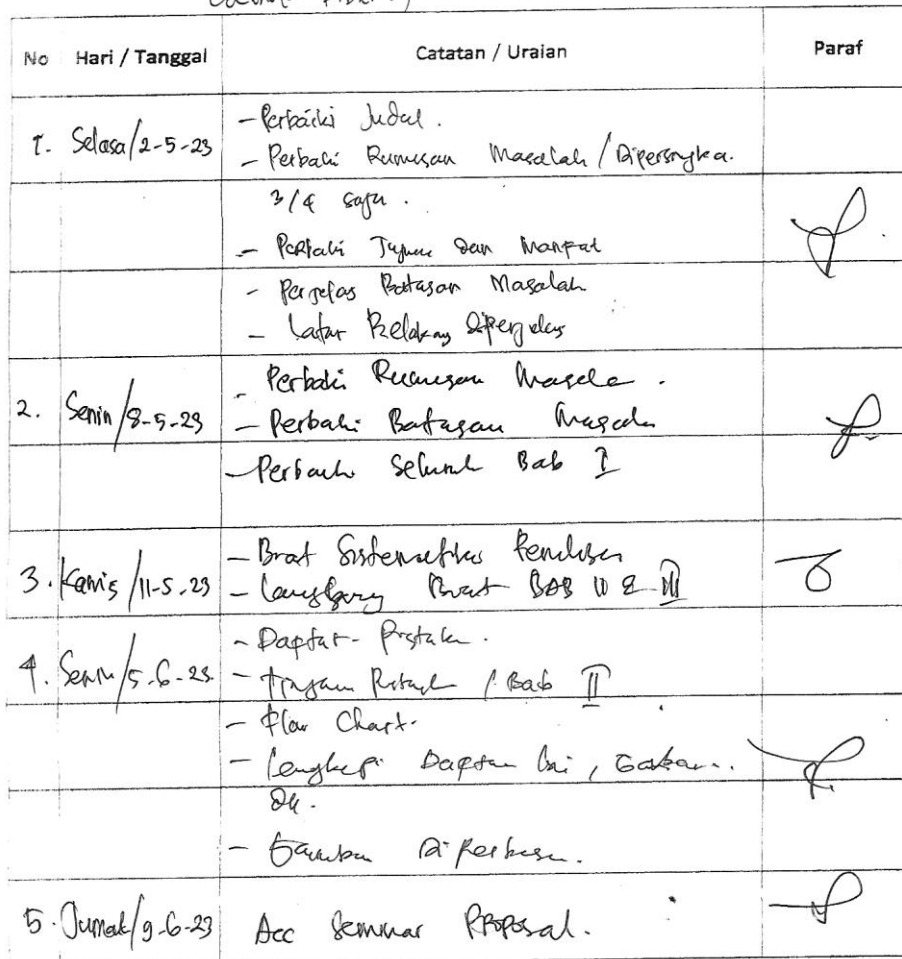 No Hari / Tanggal Catatan / Uraian Paraf
1. Selasa/2-5-23 - Perbaiki Judul.
- Perbaiki Rumusan Masalah /
3/4 saja.
- Perbaiki Tujuan Dan Manfaat
- Perjelas Batasan Masalah
- Latar Belakang diperjelas
- Perbaiki Rumusan Masala.
2. Senin/8-5-23 - Perbaiki Batasan Masala
- Perbaiki Seluruh Bab I
- Buat Sistematika Penulisan
3. Kamis/11-5-23 - Langsung Buat BAB II & III
- Daftar Pustaka.
4. Senin/5-6-23 - Tinjauan Pustaka / Bab II
- Flow Chart.
- Lengkapi Daftar Isi, Gambar..
- Gambar Diperbesar.
5. Jumat/9-6-23 Acc Seminar Proposal.